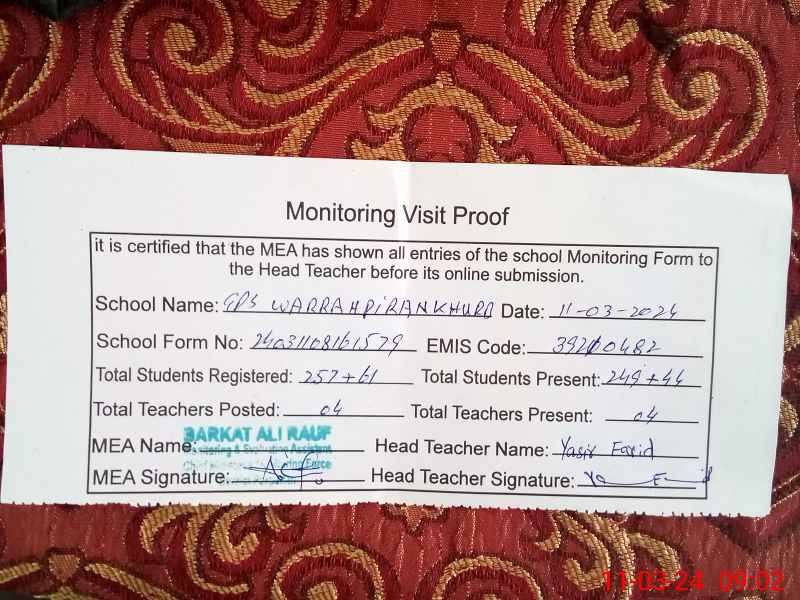 Monitoring Visit Proof
it is certified that the MEA has shown all entries of the school Monitoring Form to
the Head Teacher before its online submission.
School Name: GPS WARRAHPiRANKHURD Date: 11-03-2024
School Form No: 24031108161579 EMIS Code:
Total Students Registered: 257+61 Total Students Present: 249+44
Total Teachers Posted: 04 Total Teachers Present: 04
MEA Name: BARKAT ALI RAUF Head Teacher Name: Yasir Farid
Monitoring & Evaluation Assistant
MEA Signature: Head Teacher Signature:
11-03-24 09:02